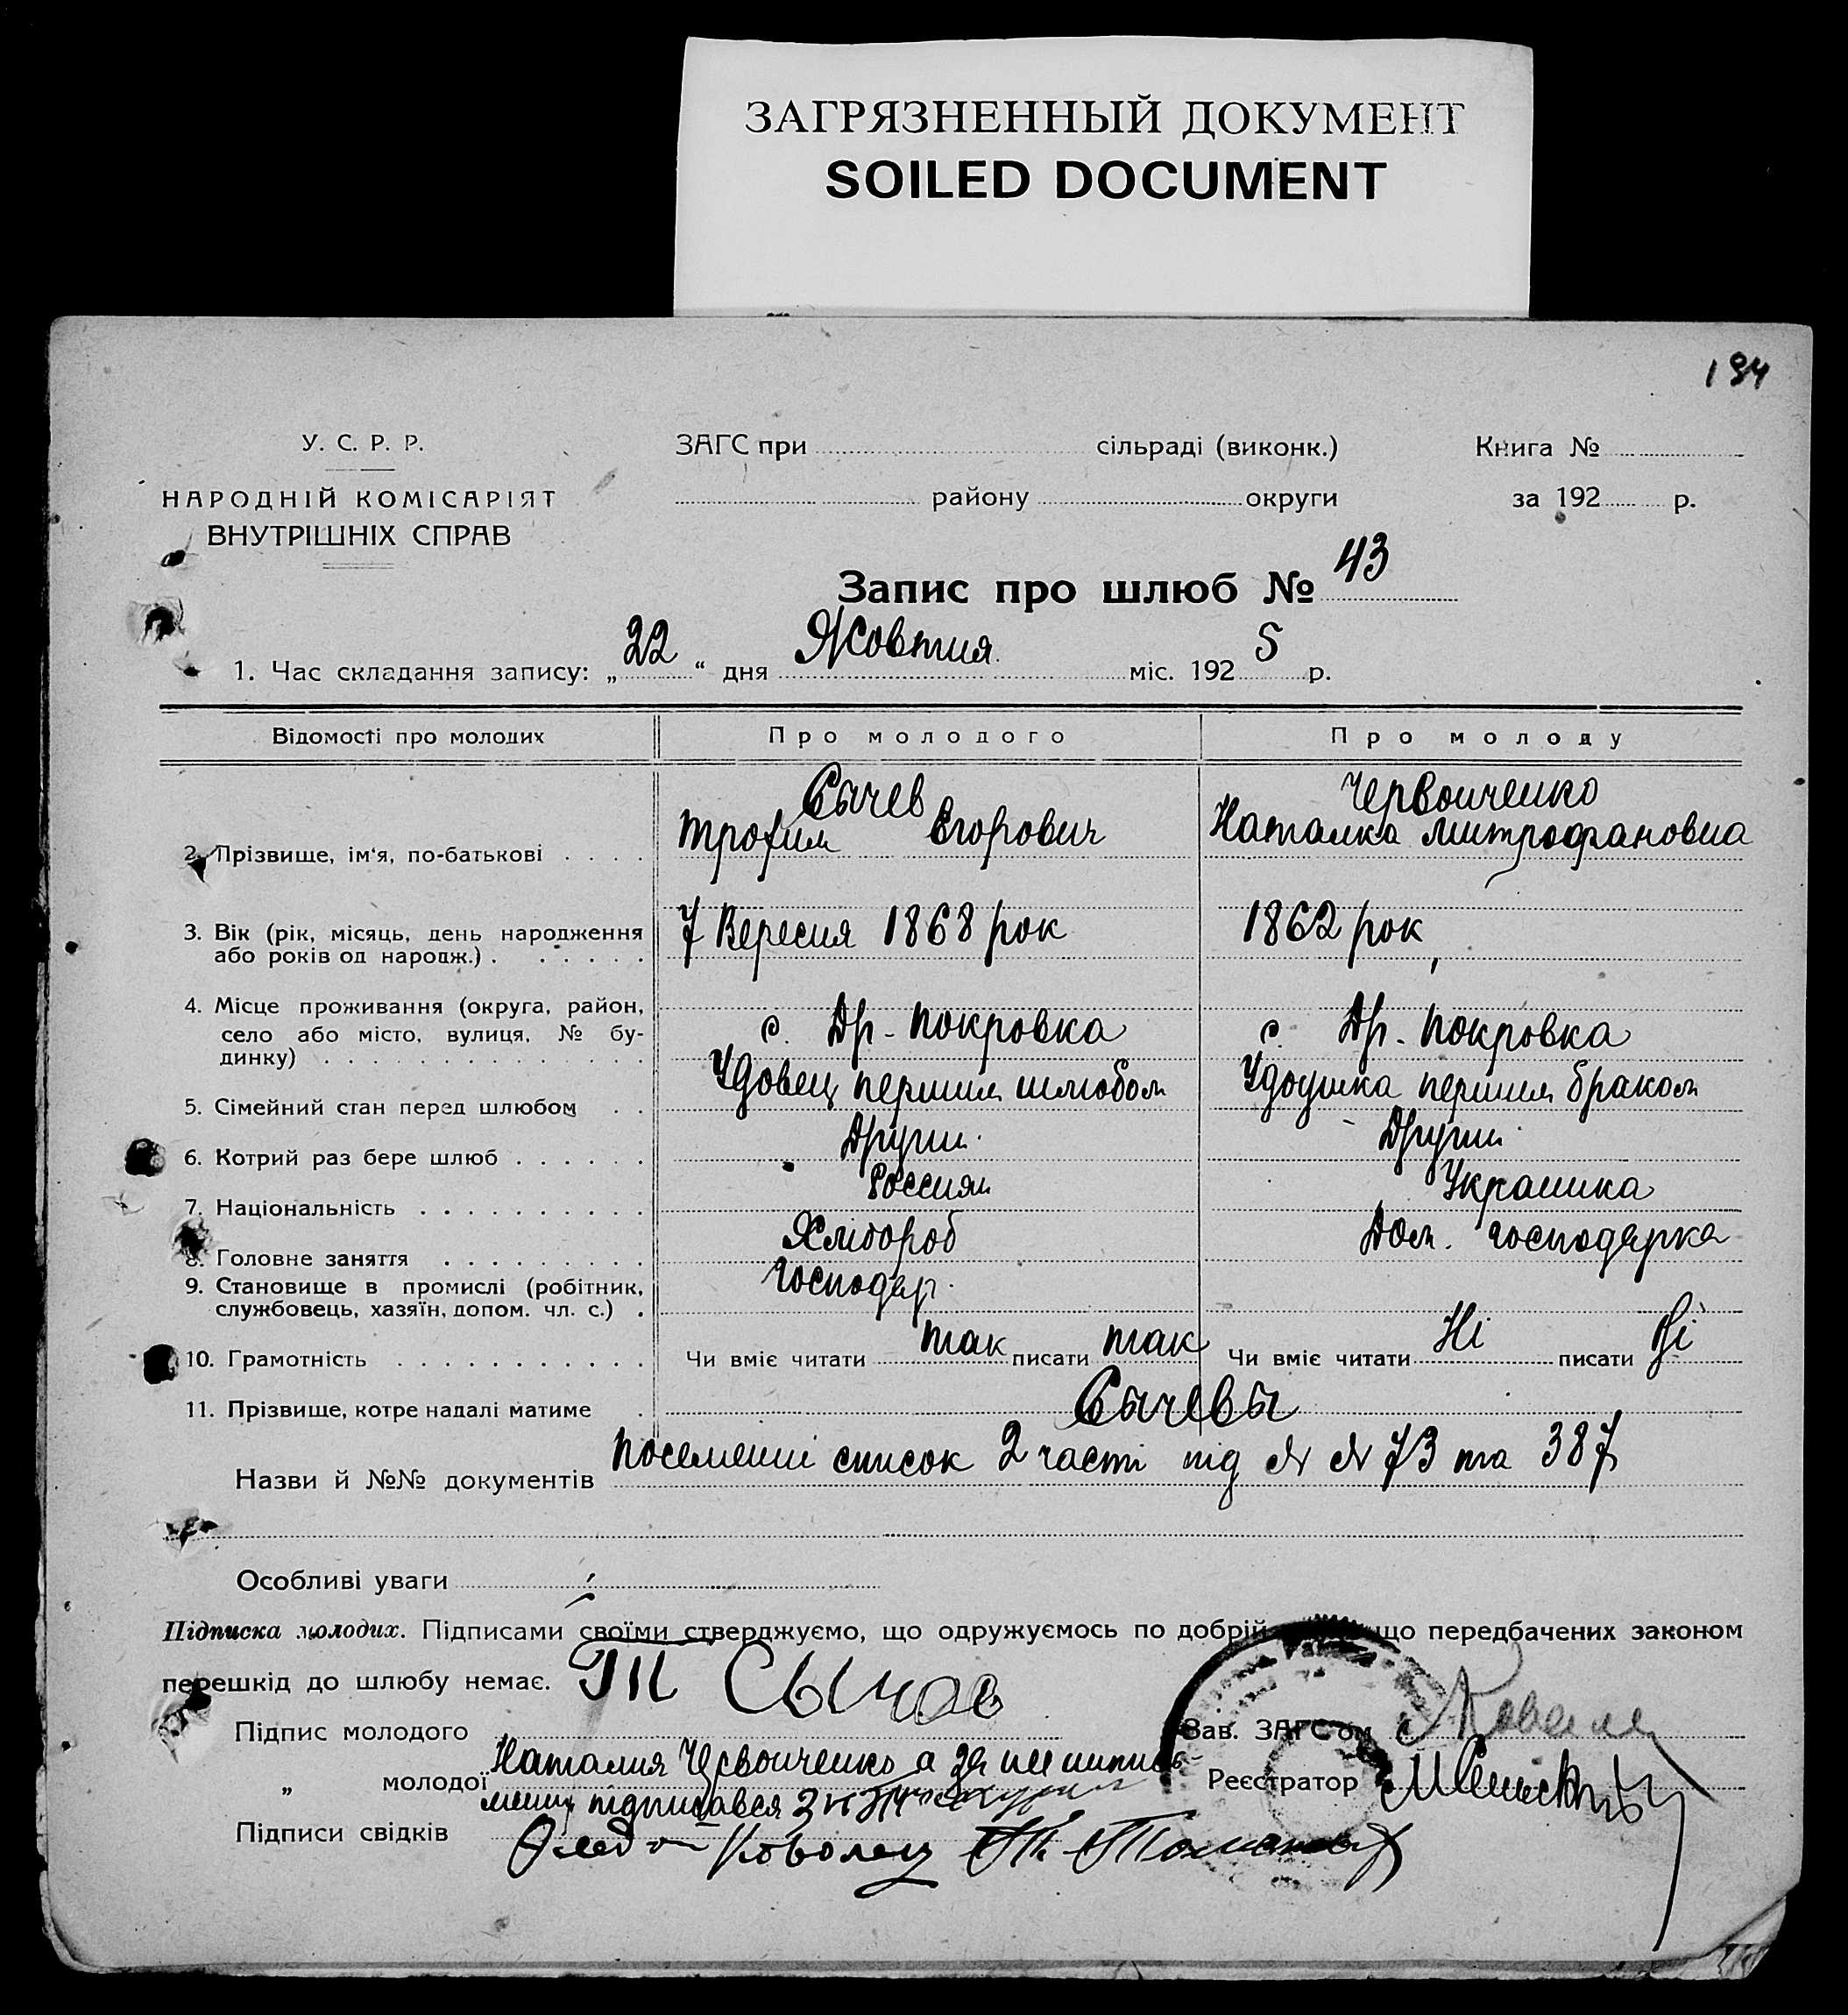 ЗАГРЯЗНЕННЫЙ ДОКУМЕНТ
SOILED DOCUMENT
194
У. С. Р. Р.
НАРОДНІЙ КОМІСАРІЯТ
ВНУТРІШНІХ СПРАВ
ЗАГС при сільраді (виконк.)
району округи
Книга №
за 192 р.
Запис про шлюб № 43
1. Час складання запису: „22“ дня Жовтня міс. 1925 р.
Відомості про молодих Про молодого Про молоду
2. Прізвище, ім'я, по-батькові . . . . Сычев Трофим Єгорович Червонченко Наталка Митрофановна
3. Вік (рік, місяць, день народження або років од народж.) . . . . . . 7 Вересня 1868 рок 1862 рок
4. Місце проживання (округа, район, село або місто, вулиця, № будинку) . . . . . . . . . . . . . с. Др-Покровка с. Др-Покровка
5. Сімейний стан перед шлюбом . . Удовец першим шлюбом Удоушка першим браком
6. Котрий раз бере шлюб . . . . . . Другий Другий
7. Національність . . . . . . . . . . Россиян Украинка
8. Головне заняття . . . . . . . . . Хлібороб Дом. господарка
9. Становище в промислі (робітник, службовець, хазяїн, допом. чл. с.) . Господар.
10. Грамотність . . . . . . . . . . . Чи вміє читати так писати так Чи вміє читати Ні писати Ні
11. Прізвище, котре надалі матиме . Сычевы
Назви й №№ документів Посемейні список 2 часті під № № 73 та 387
Особливі уваги
Підписка молодих. Підписами своїми стверджуємо, що одружуємось по добрій що передбачених законом
перешкід до шлюбу немає.
Підпис молодого Т Сычов
Зав. ЗАГС'ом
„ молодої Наталия Червонченко а за
підписався
Реєстратор
Підписи свідків